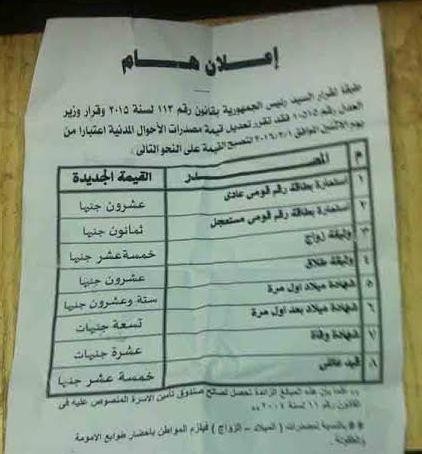 إعلان هـام
طبقا لقرار السيد رئيس الجمهورية بقانون رقم ١١٣ لسنة ٢٠١٥ وقرار وزير
العدل رقم ١٠٥١٥ فقد تقرر تعديل قيمة مصدرات الأحوال المدنية اعتبارا من
يوم الاثنين الموافق ٢٠١٦/٢/١ لتصبح القيمة على النحو التالى:
م المصدر القيمة الجديدة
١ استمارة بطاقة رقم قومى عادى عشرون جنيها
٢ استمارة بطاقة رقم قومى مستعجل ثمانون جنيها
٣ وثيقة زواج خمسة عشر جنيها
٤ وثيقة طلاق عشرون جنيها
٥ شهادة ميلاد اول مرة ستة وعشرون جنيها
٦ شهادة ميلاد بعد اول مرة تسعة جنيهات
٧ شهادة وفاة عشرة جنيهات
٨ قيد عائلى خمسة عشر جنيها
علما بان هذه المبالغ الزائدة تحصل لصالح صندوق تأمين الاسرة المنصوص عليه فى
القانون رقم ١١ لسنة ٢٠٠٤ ،،
** بالنسبة لمصدرات ( الميلاد - الزواج ) فيلزم المواطن باحضار طوابع الامومة
والطفولة